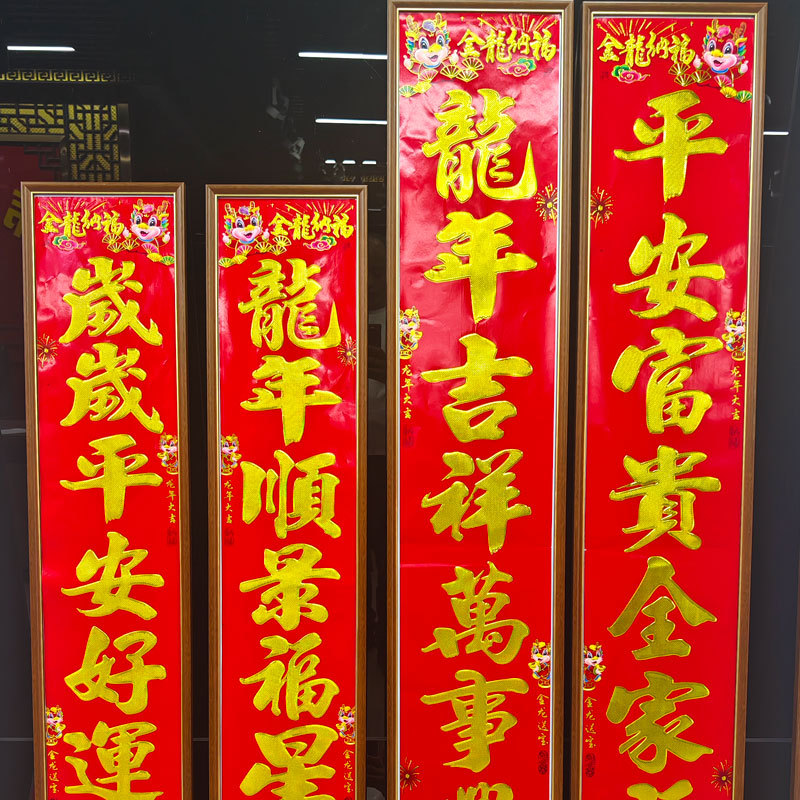 金龍納福
歲歲平安好運
龙年大吉
金龙送宝
金龍納福
龍年順景福星
龙年大吉
金龙送宝
金龍納福
龍年吉祥萬事
龙年大吉
金龙送宝
金龍納福
平安富貴全家
龙年大吉
金龙送宝